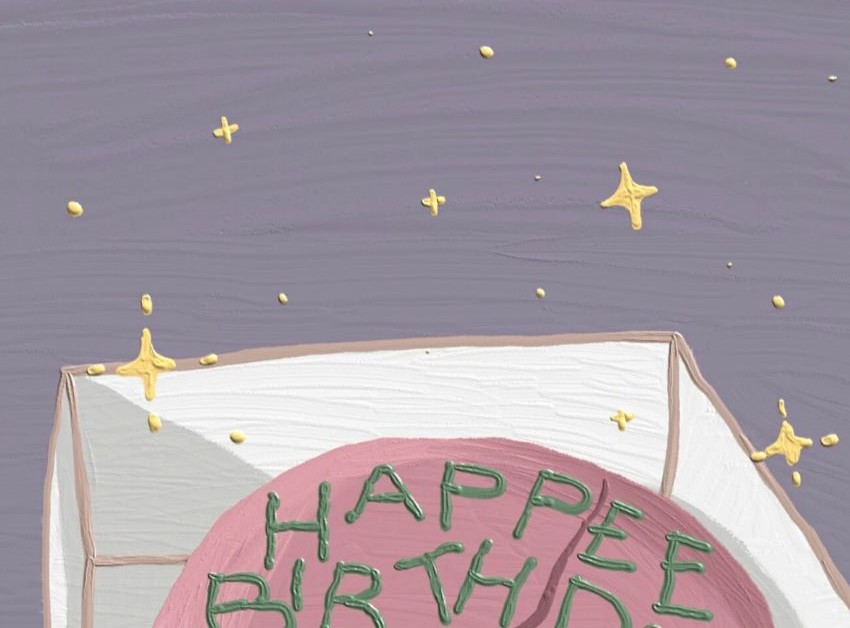 HAPPEE
BIRTHD